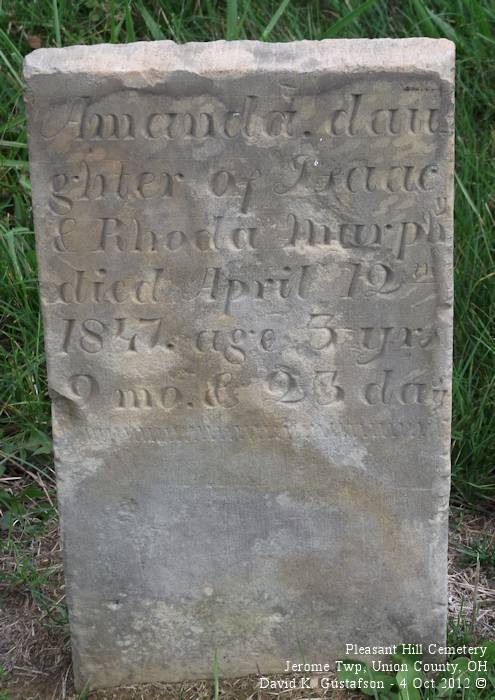 Amanda. dau
ghter of Isaac
& Rhoda Murphy
died April 12th
1847. age 3 yrs
9 mo. & 23 days
Pleasant Hill Cemetery
Jerome Twp, Union County, OH
David K. Gustafson - 4 Oct. 2012 ©